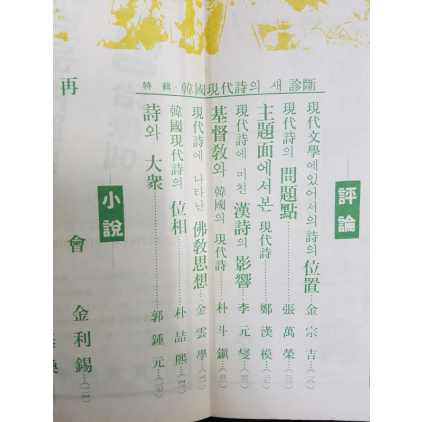 特輯·韓國現代詩의 새 診斷
評論
現代文學에있어서의 詩의 位置……金宗吉…(一八)
現代詩의 問題點……張萬榮…
主題面에서본 現代詩……鄭漢模…
現代詩에 미친 漢詩의 影響……李元燮…
基督敎와 韓國의 現代詩……朴斗鎭…
現代詩에 나타난 佛敎思想…金雲學…
韓國現代詩의 位相……朴喆熙…
詩와 大衆……郭鍾元…
小說
再會 金利錫…